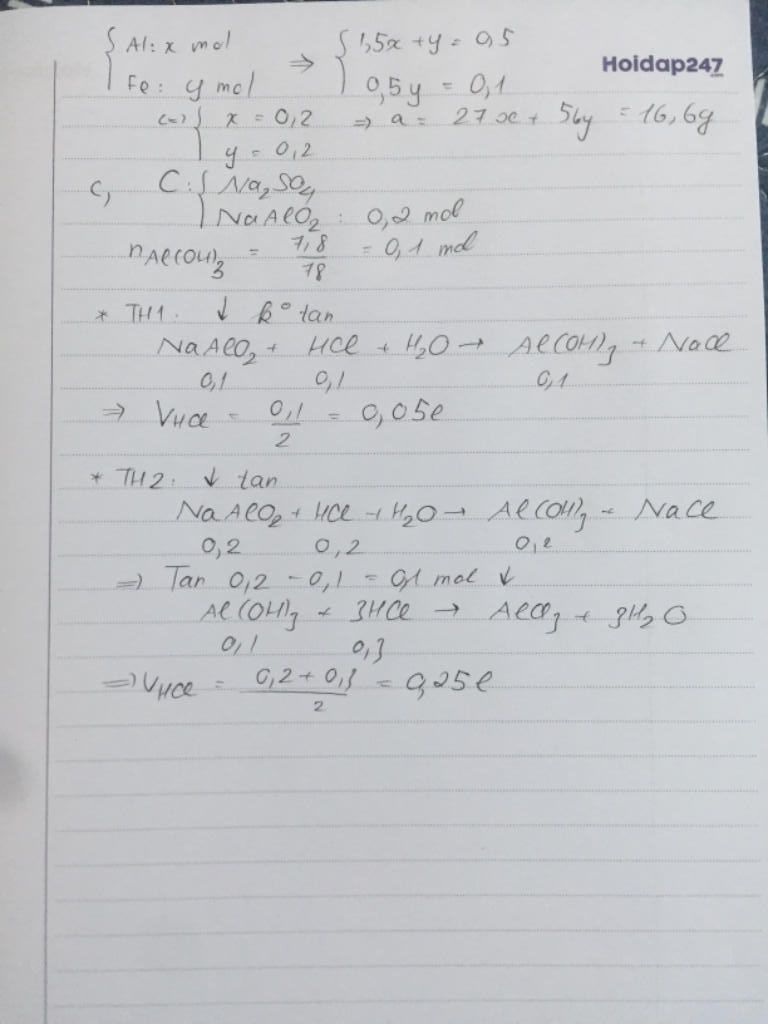 { Al: x mol ⇒ { 1,5x + y = 0,5
Hoidap247
Fe: y mol 0,5y = 0,1
(=) { x = 0,2 ⇒ a = 27x + 56y = 16,6g
y = 0,2
c, C: { Na₂SO₄
NaAlO₂ : 0,2 mol
nAl(OH)₃ = 7,8/78 = 0,1 mol
* TH1. ↓ k° tan
NaAlO₂ + HCl + H₂O → Al(OH)₃ + NaCl
0,1 0,1 0,1
⇒ VHCl = 0,1/2 = 0,05l
* TH2. ↓ tan
NaAlO₂ + HCl + H₂O → Al(OH)₃ + NaCl
0,2 0,2 0,2
⇒ Tan 0,2 - 0,1 = 0,1 mol ↓
Al(OH)₃ + 3HCl → AlCl₃ + 3H₂O
0,1 0,3
⇒ VHCl = (0,2 + 0,3)/2 = 0,25l